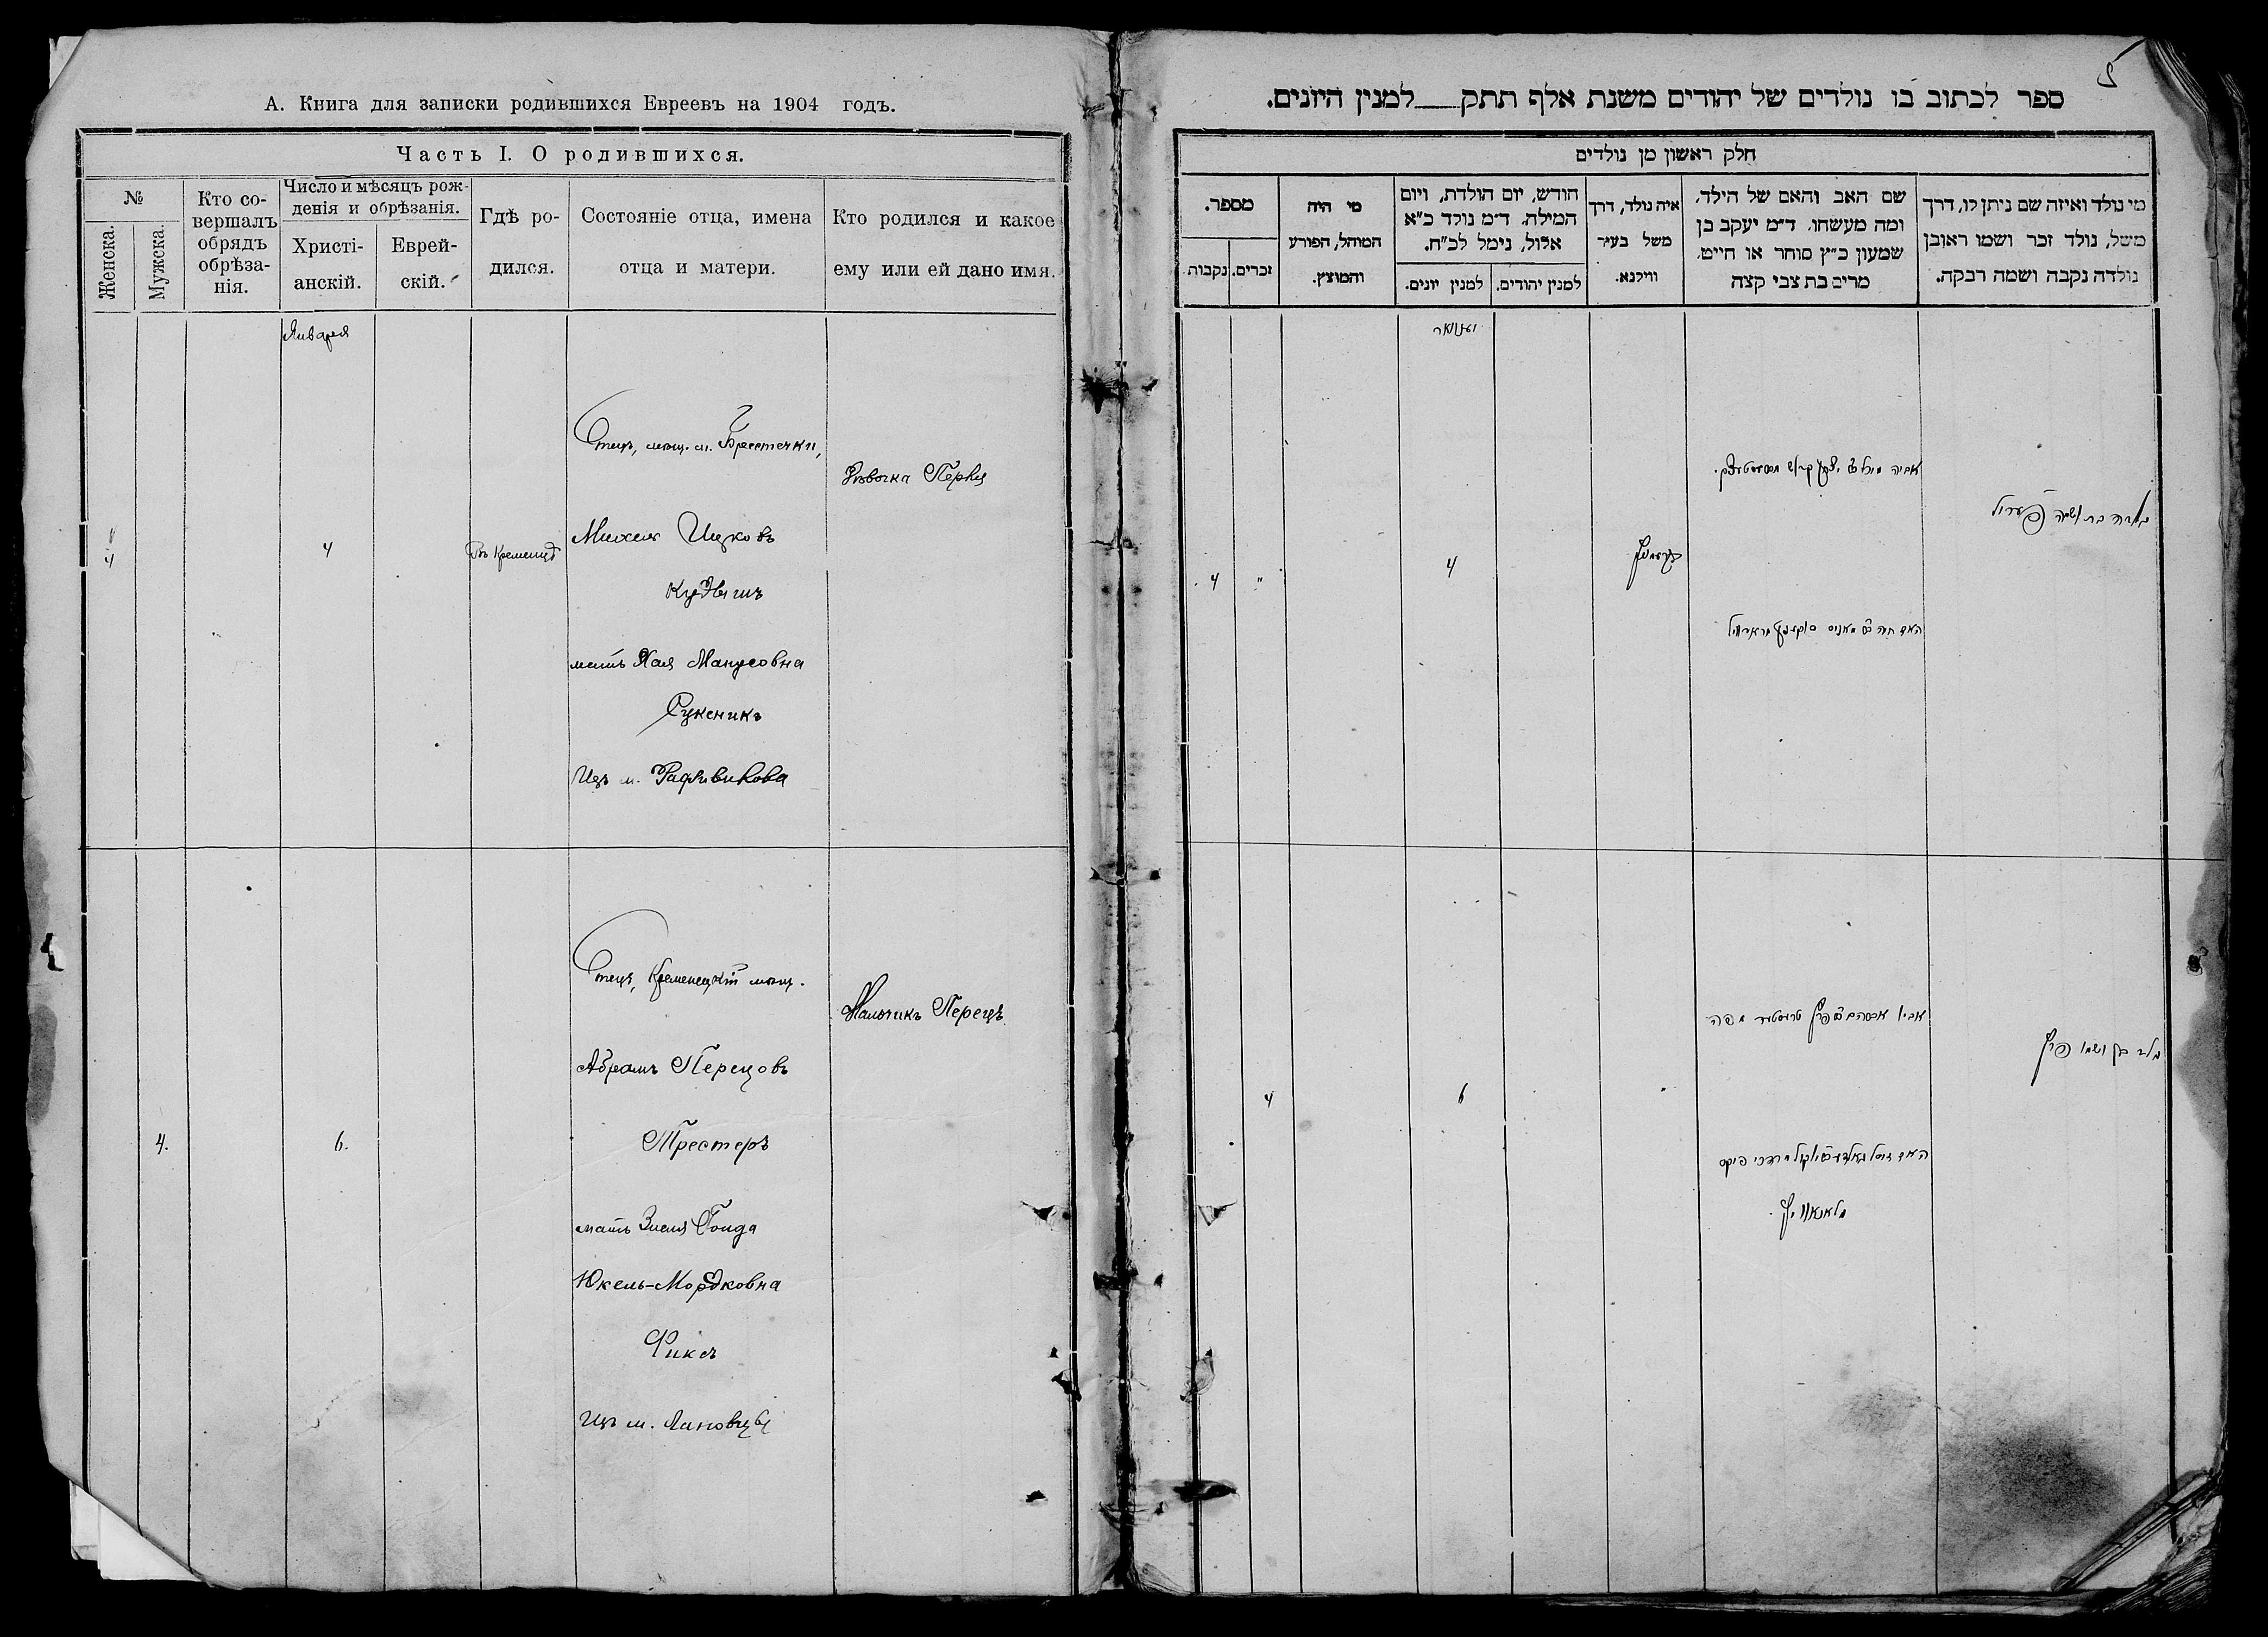 А. Книга для записки родившихся Евреевъ на 1904 годъ.
Часть I. О родившихся.
№
Женска.
Мужска.
Кто со-
вершалъ
обрядъ
обрѣза-
нія.
Число и мѣсяцъ рож-
денія и обрѣзанія.
Христі-
анскій.
Еврей-
скій.
Гдѣ ро-
дился.
Состояніе отца, имена
отца и матери.
Кто родился и какое
ему или ей дано имя.
Января
4
4
Въ Кременцѣ
Отецъ, мѣщ. м. Берестечки,
Ицковъ
мать Хая Манусовна
Сукеникъ
Изъ м.
Дѣвочка Перля
4.
6.
Отецъ, Кременецкій мѣщ.
Абрамъ Перецовъ
Трестеръ
мать Зисля Гольда
Юкель-Мордковна
Фиксъ
Изъ м. Лановцы
Мальчикъ Перецъ
5
ספר לכתוב בו נולדים של יהודים משנת אלף תתק למנין היונים.
חלק ראשון מן נולדים
מי נולד ואיזה שם ניתן לו, דרך
משל, נולד זכר ושמו ראובן
נולדה נקבה ושמה רבקה.
שם האב והאם של הילד,
ומה מעשהו. ד״מ יעקב בן
שמעון כ״ץ סוחר או חייט,
מרים בת צבי קצה
איה נולד, דרך
משל בעיר
ווילנא.
חודש, יום הולדת, ויום
המילה. ד״מ נולד כ״א
אלול, נימל לכ״ח.
למנין יהודים.
למנין יונים.
מי היה
המוהל, הפורע
והמוצץ.
מספר.
זכרים.
נקבות.
יאנואר
קרעמניץ
4
"
4
נולדה בת ושמה פערל
6
4
אביו אברהם ב״ר פרץ טרעסטער מפה
נולד בן ושמו פרץ